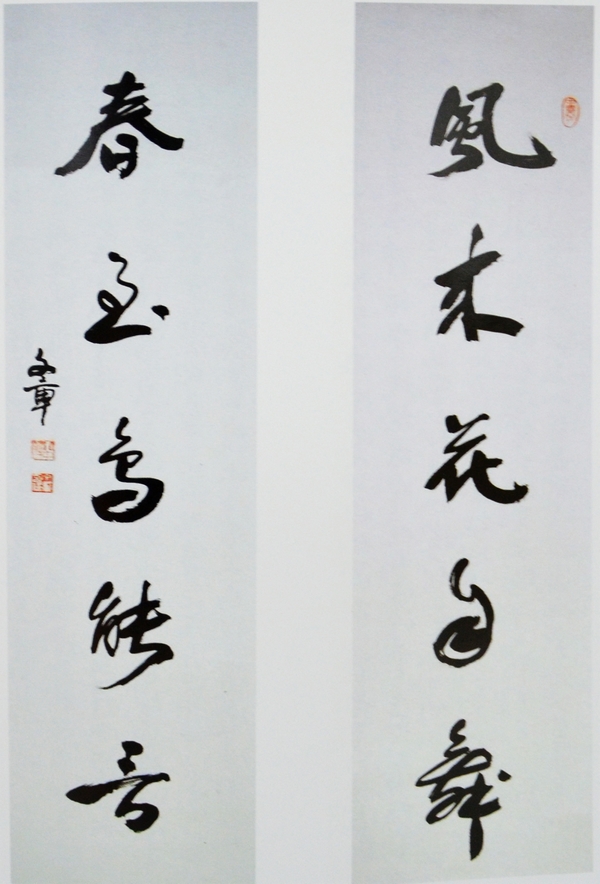 風来花自舞
春至鳥能言